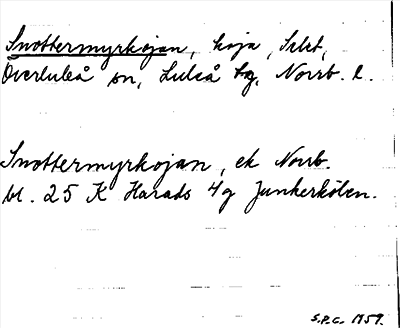 Snottermyrkojan, koja, Srbt,
Överluleå sn, Luleå tg, Norrb. l.
Snottermyrkojan, ek Norrb.
bl. 25 K Harads 4g Junkerkölen.
S.P.G. 1959.